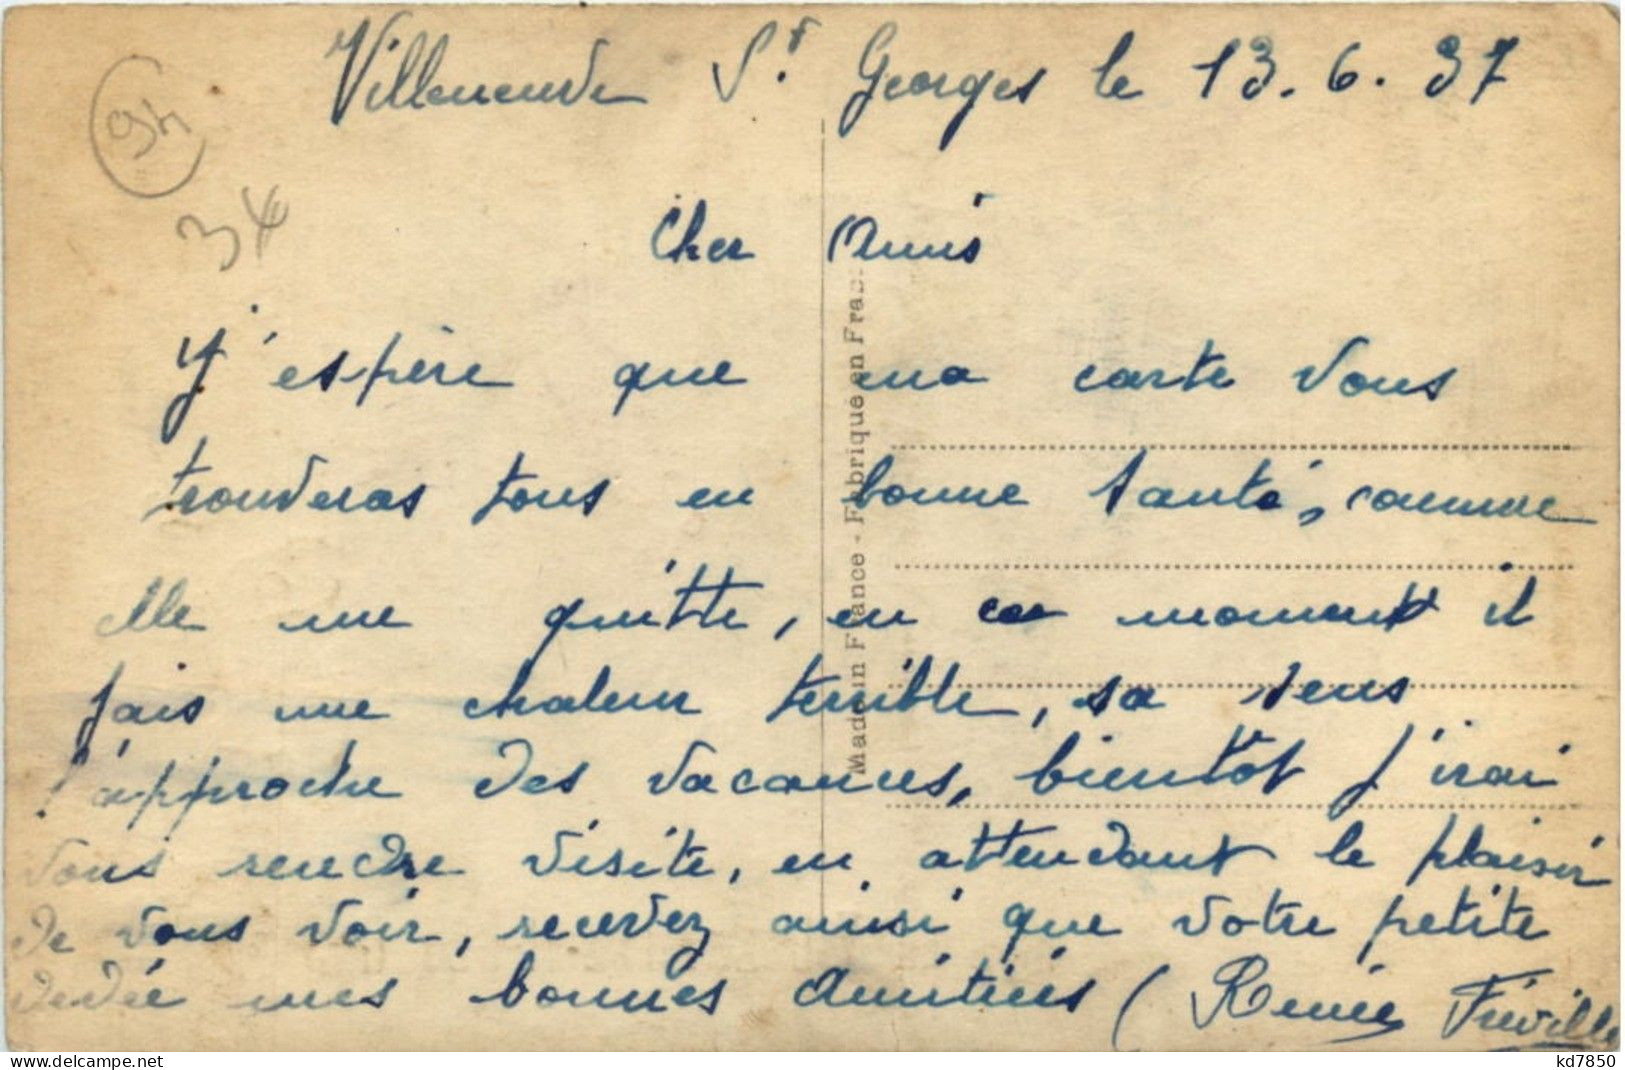 Villeneuve St. Georges le 13.6.37
94
34
Cher Amis
J'espère que ma carte vous
trouveras tous en bonne santé, comme
elle me quitte, en ce moment il
fais une chaleur terrible, sa sens
l'approche des vacances, bientôt j'irai
vous rendre visite, en attendant le plaisir
de vous voir, recevez ainsi que votre petite
dédée mes bonnes amitiés (Renée Fréville
Made in France - Fabriqué en Fra
delcampe.net
kd7850